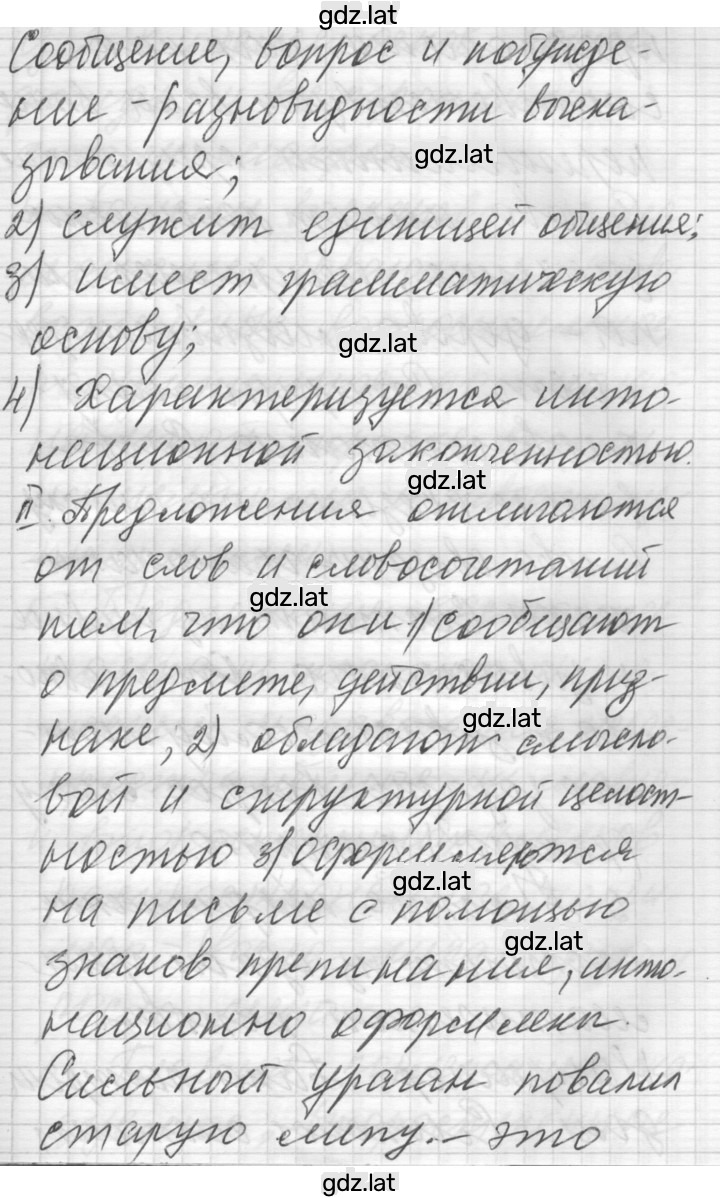 gdz.lat
Сообщение, вопрос и побужде-
ние - разновидности выска-
gdz.lat
зывания;
2) служит единицей общения;
3) имеет грамматическую
основу;
gdz.lat
4) характеризуется инто-
национной законченностью.
gdz.lat
II. Предложения отличаются
от слов и словосочетаний
gdz.lat
тем, что они 1) сообщают
о предмете, действии, приз-
gdz.lat
наке, 2) обладают смысло-
вой и структурной целост-
ностью 3) оформляются
gdz.lat
на письме с помощью
gdz.lat
знаков препинания, инто-
национно оформлены.
Сильный ураган повалил
старую липу. - это
gdz.lat